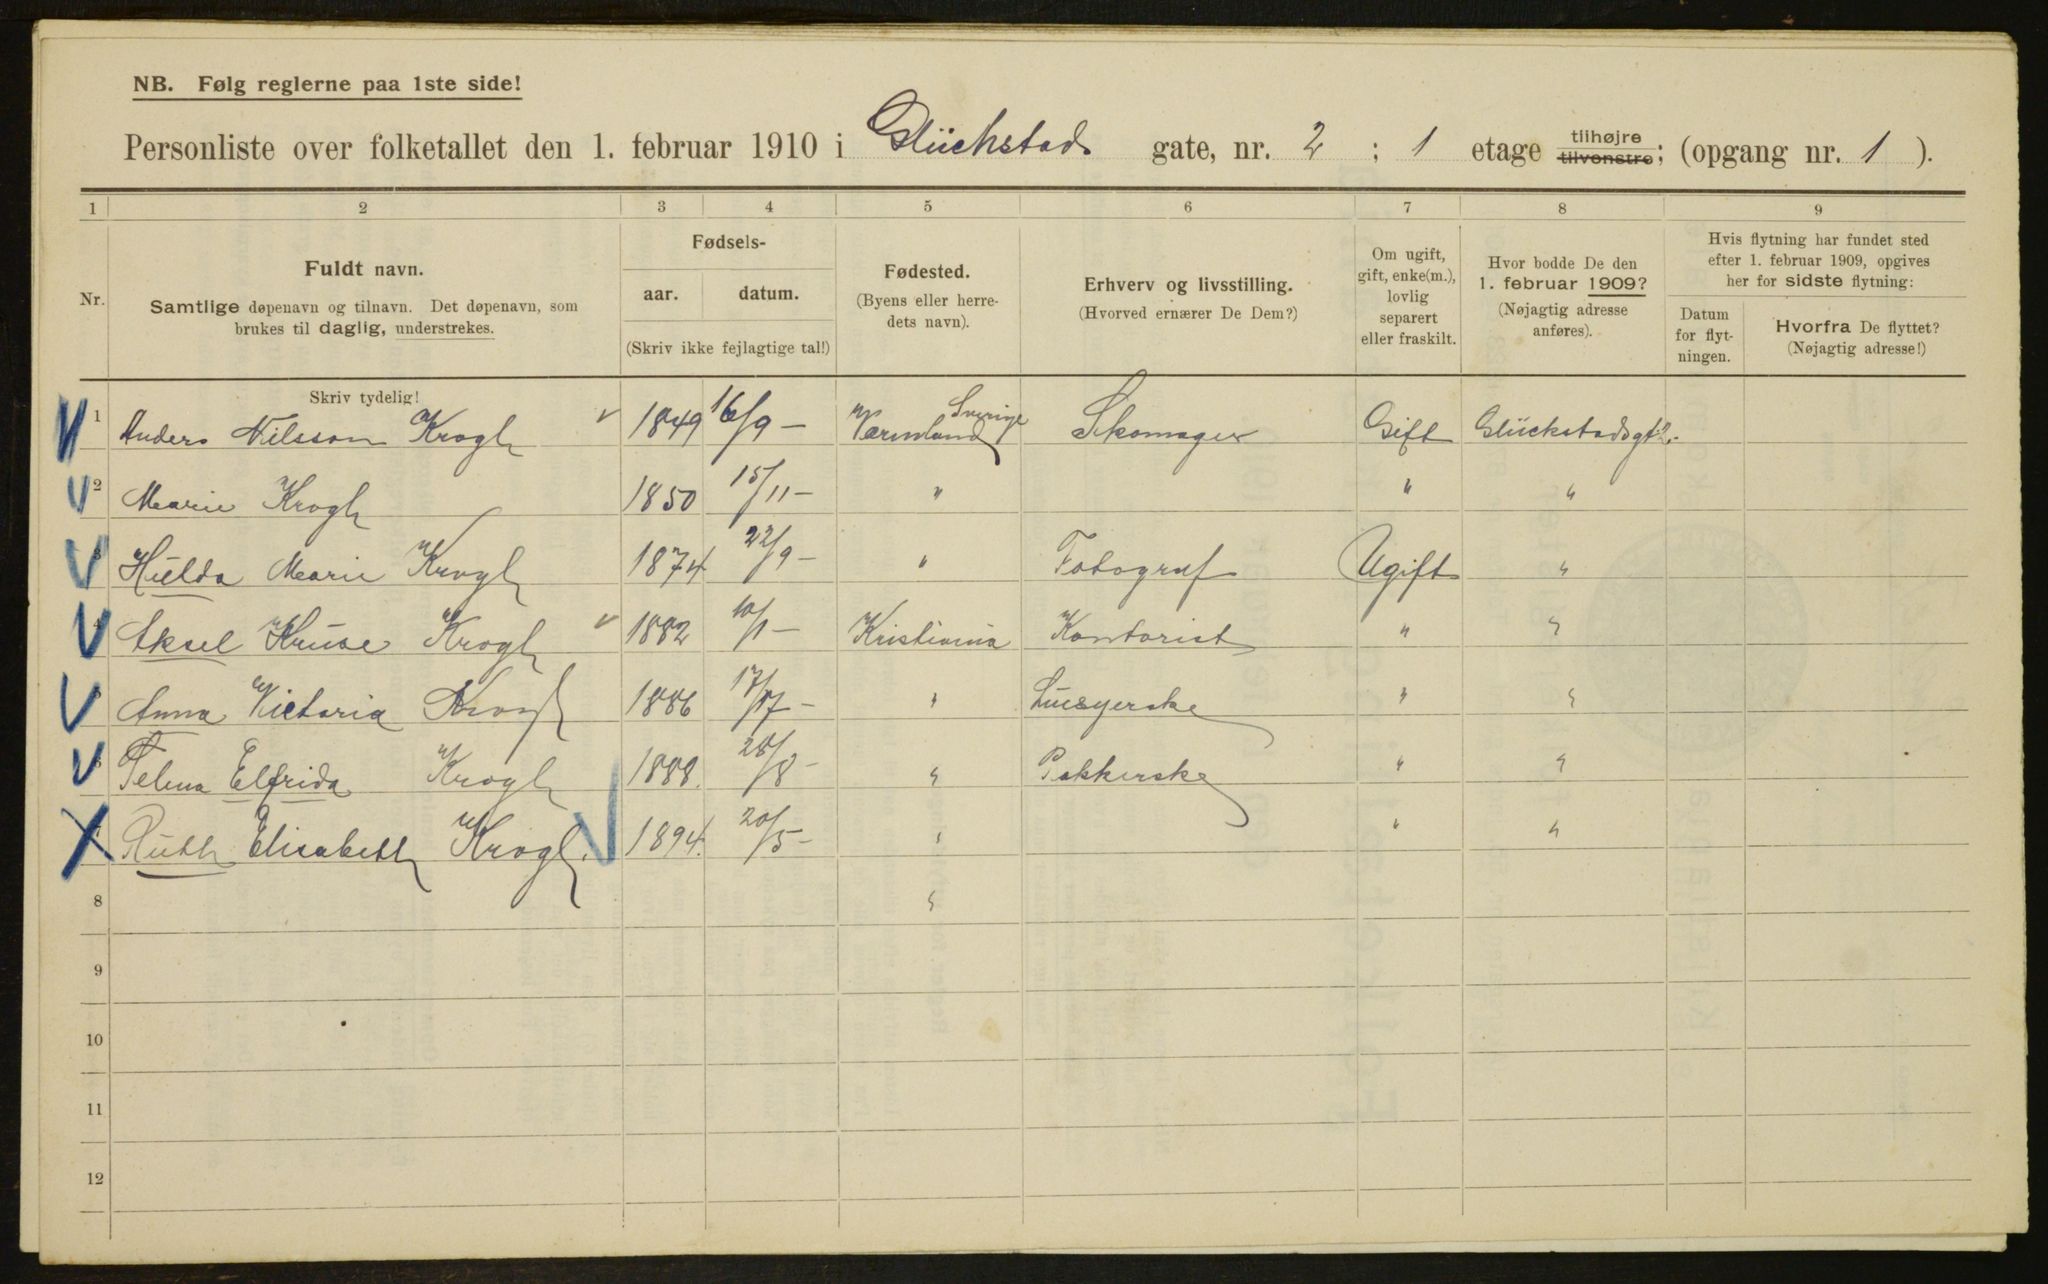 NB. Følg reglerne paa 1ste side!
Personliste over folketallet den 1. februar 1910 i Glückstads gate, nr. 2 ; 1 etage tilhøjre tilvenstre; (opgang nr. 1 ).
1 2 3 4 5 6 7 8 9
Nr.
Fuldt navn.
Samtlige døpenavn og tilnavn. Det døpenavn, som
brukes til daglig, understrekes.
Fødsels-
aar. datum.
(Skriv ikke fejlagtige tal!)
Fødested.
(Byens eller herre-
dets navn).
Erhverv og livsstilling.
(Hvorved ernærer De Dem?)
Om ugift,
gift, enke(m.),
lovlig
separert
eller fraskilt.
Hvor bodde De den
1. februar 1909?
(Nøjagtig adresse
anføres).
Hvis flytning har fundet sted
efter 1. februar 1909, opgives
her for sidste flytning:
Datum
for flyt-
ningen.
Hvorfra De flyttet?
(Nøjagtig adresse!)
Skriv tydelig!
1 Anders Nilsson Krogh 1849 16/9 - Värmland Sverige Skomager Gift Glückstadsgt 2.
2 Marie Krogh 1850 15/11 - " " "
3 Hulda Marie Krogh 1874 22/9 - " Fotograf Ugift "
4 Aksel Kruse Krogh 1882 10/1 - Kristiania Kontorist " "
5 Anna Victoria Krogh 1886 17/ - " " "
6 Elfrida Krogh 1888. 28/8 - " Pakkerske " "
7 Ruth Elisabeth Krogh. 1894. 20/5 - " " "
8 "
9
10
11
12